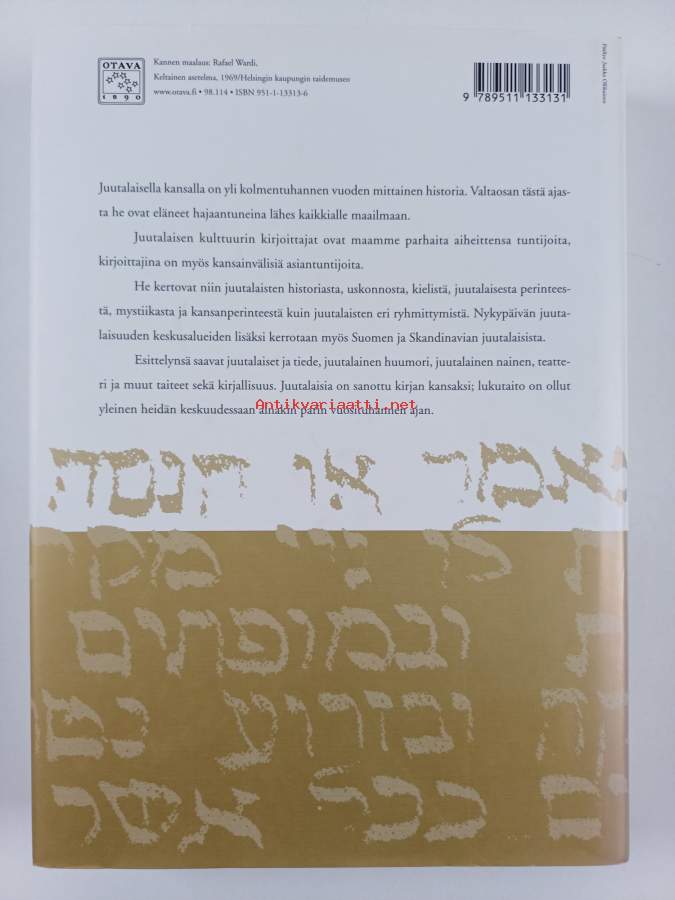 OTAVA
1890
Kannen maalaus: Rafael Wardi,
Keltainen asetelma, 1969/Helsingin kaupungin taidemuseo
www.otava.fi • 98.114 • ISBN 951-1-13313-6
9 789511 133131
Juutalaisella kansalla on yli kolmentuhannen vuoden mittainen historia. Valtaosan tästä ajas-
ta he ovat eläneet hajaantuneina lähes kaikkialle maailmaan.
Juutalaisen kulttuurin kirjoittajat ovat maamme parhaita aiheittensa tuntijoita,
kirjoittajina on myös kansainvälisiä asiantuntijoita.
He kertovat niin juutalaisten historiasta, uskonnosta, kielistä, juutalaisesta perintees-
tä, mystiikasta ja kansanperinteestä kuin juutalaisten eri ryhmittymistä. Nykypäivän juuta-
laisuuden keskusalueiden lisäksi kerrotaan myös Suomen ja Skandinavian juutalaisista.
Esittelynsä saavat juutalaiset ja tiede, juutalainen huumori, juutalainen nainen, teatte-
ri ja muut taiteet sekä kirjallisuus. Juutalaisia on sanottu kirjan kansaksi; lukutaito on ollut
yleinen heidän keskuudessaan ainakin parin vuosituhannen ajan.
Antikvariaatti.net
או הנסה
ובמופתים
ובזרוע
ככל אשר